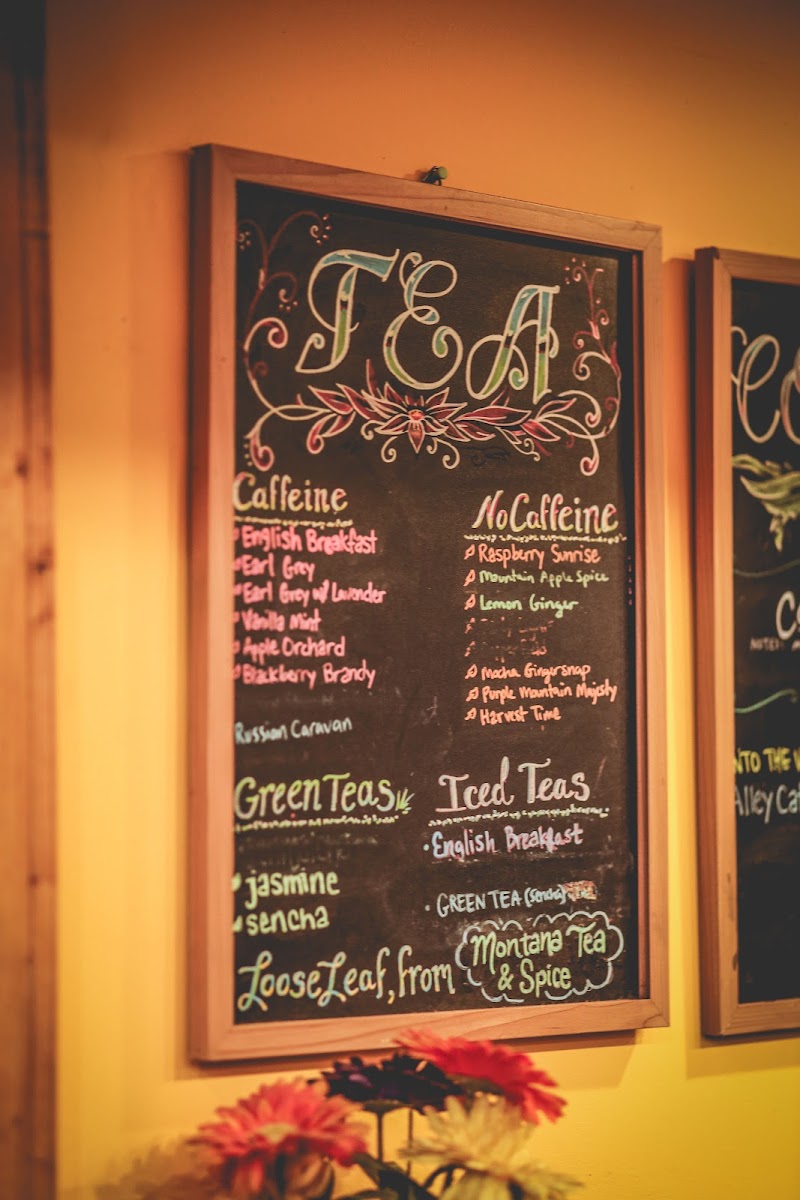 TEA
Caffeine
English Breakfast
Earl Grey
Earl Grey w/ Lavender
Vanilla Mint
Apple Orchard
Blackberry Brandy
Russian Caravan
No Caffeine
Raspberry Sunrise
Mountain Apple Spice
Lemon Ginger
Mocha Gingersnap
Purple Mountain Majesty
Harvest Time
Green Teas
jasmine
sencha
Iced Teas
English Breakfast
GREEN TEA (sencha)
Loose Leaf, from
Montana Tea
& Spice
Alley Cat